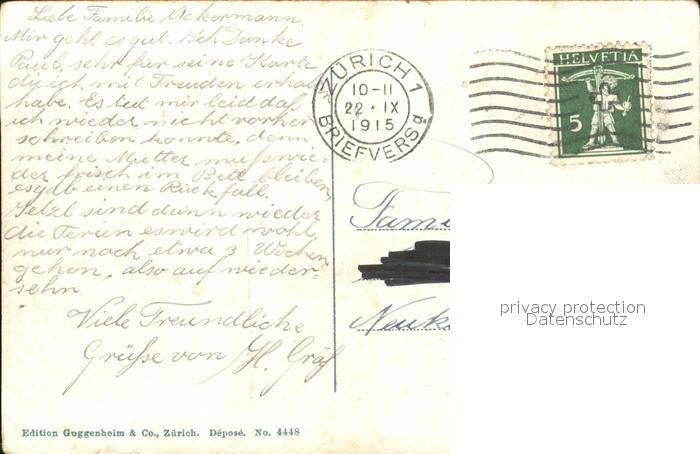 Liebe Familie Ackermann.
Mir geht es gut. Ich Danke
Paul, sehr für seine Karte
die ich mit Freuden erhal
habe. Es tut mir leid daß
ich wieder nicht vorher
schreiben konnte, denn
meine Mutter muß wie-
der frisch im Bett bleiben,
es gab einen Rückfall.
Jetzt sind dann wieder
die Ferien es wird wohl
nur noch etwa 3 Wochen
gehen, also auf wieder-
sehn.
Viele Freundliche
Grüße von H. Gräf
Edition Guggenheim & Co., Zürich. Déposé. No. 4448
ZÜRICH 1
10-11
22 · IX
1915
BRIEFVERS d
HELVETIA
5
Fami
Neuk
privacy protection
Datenschutz